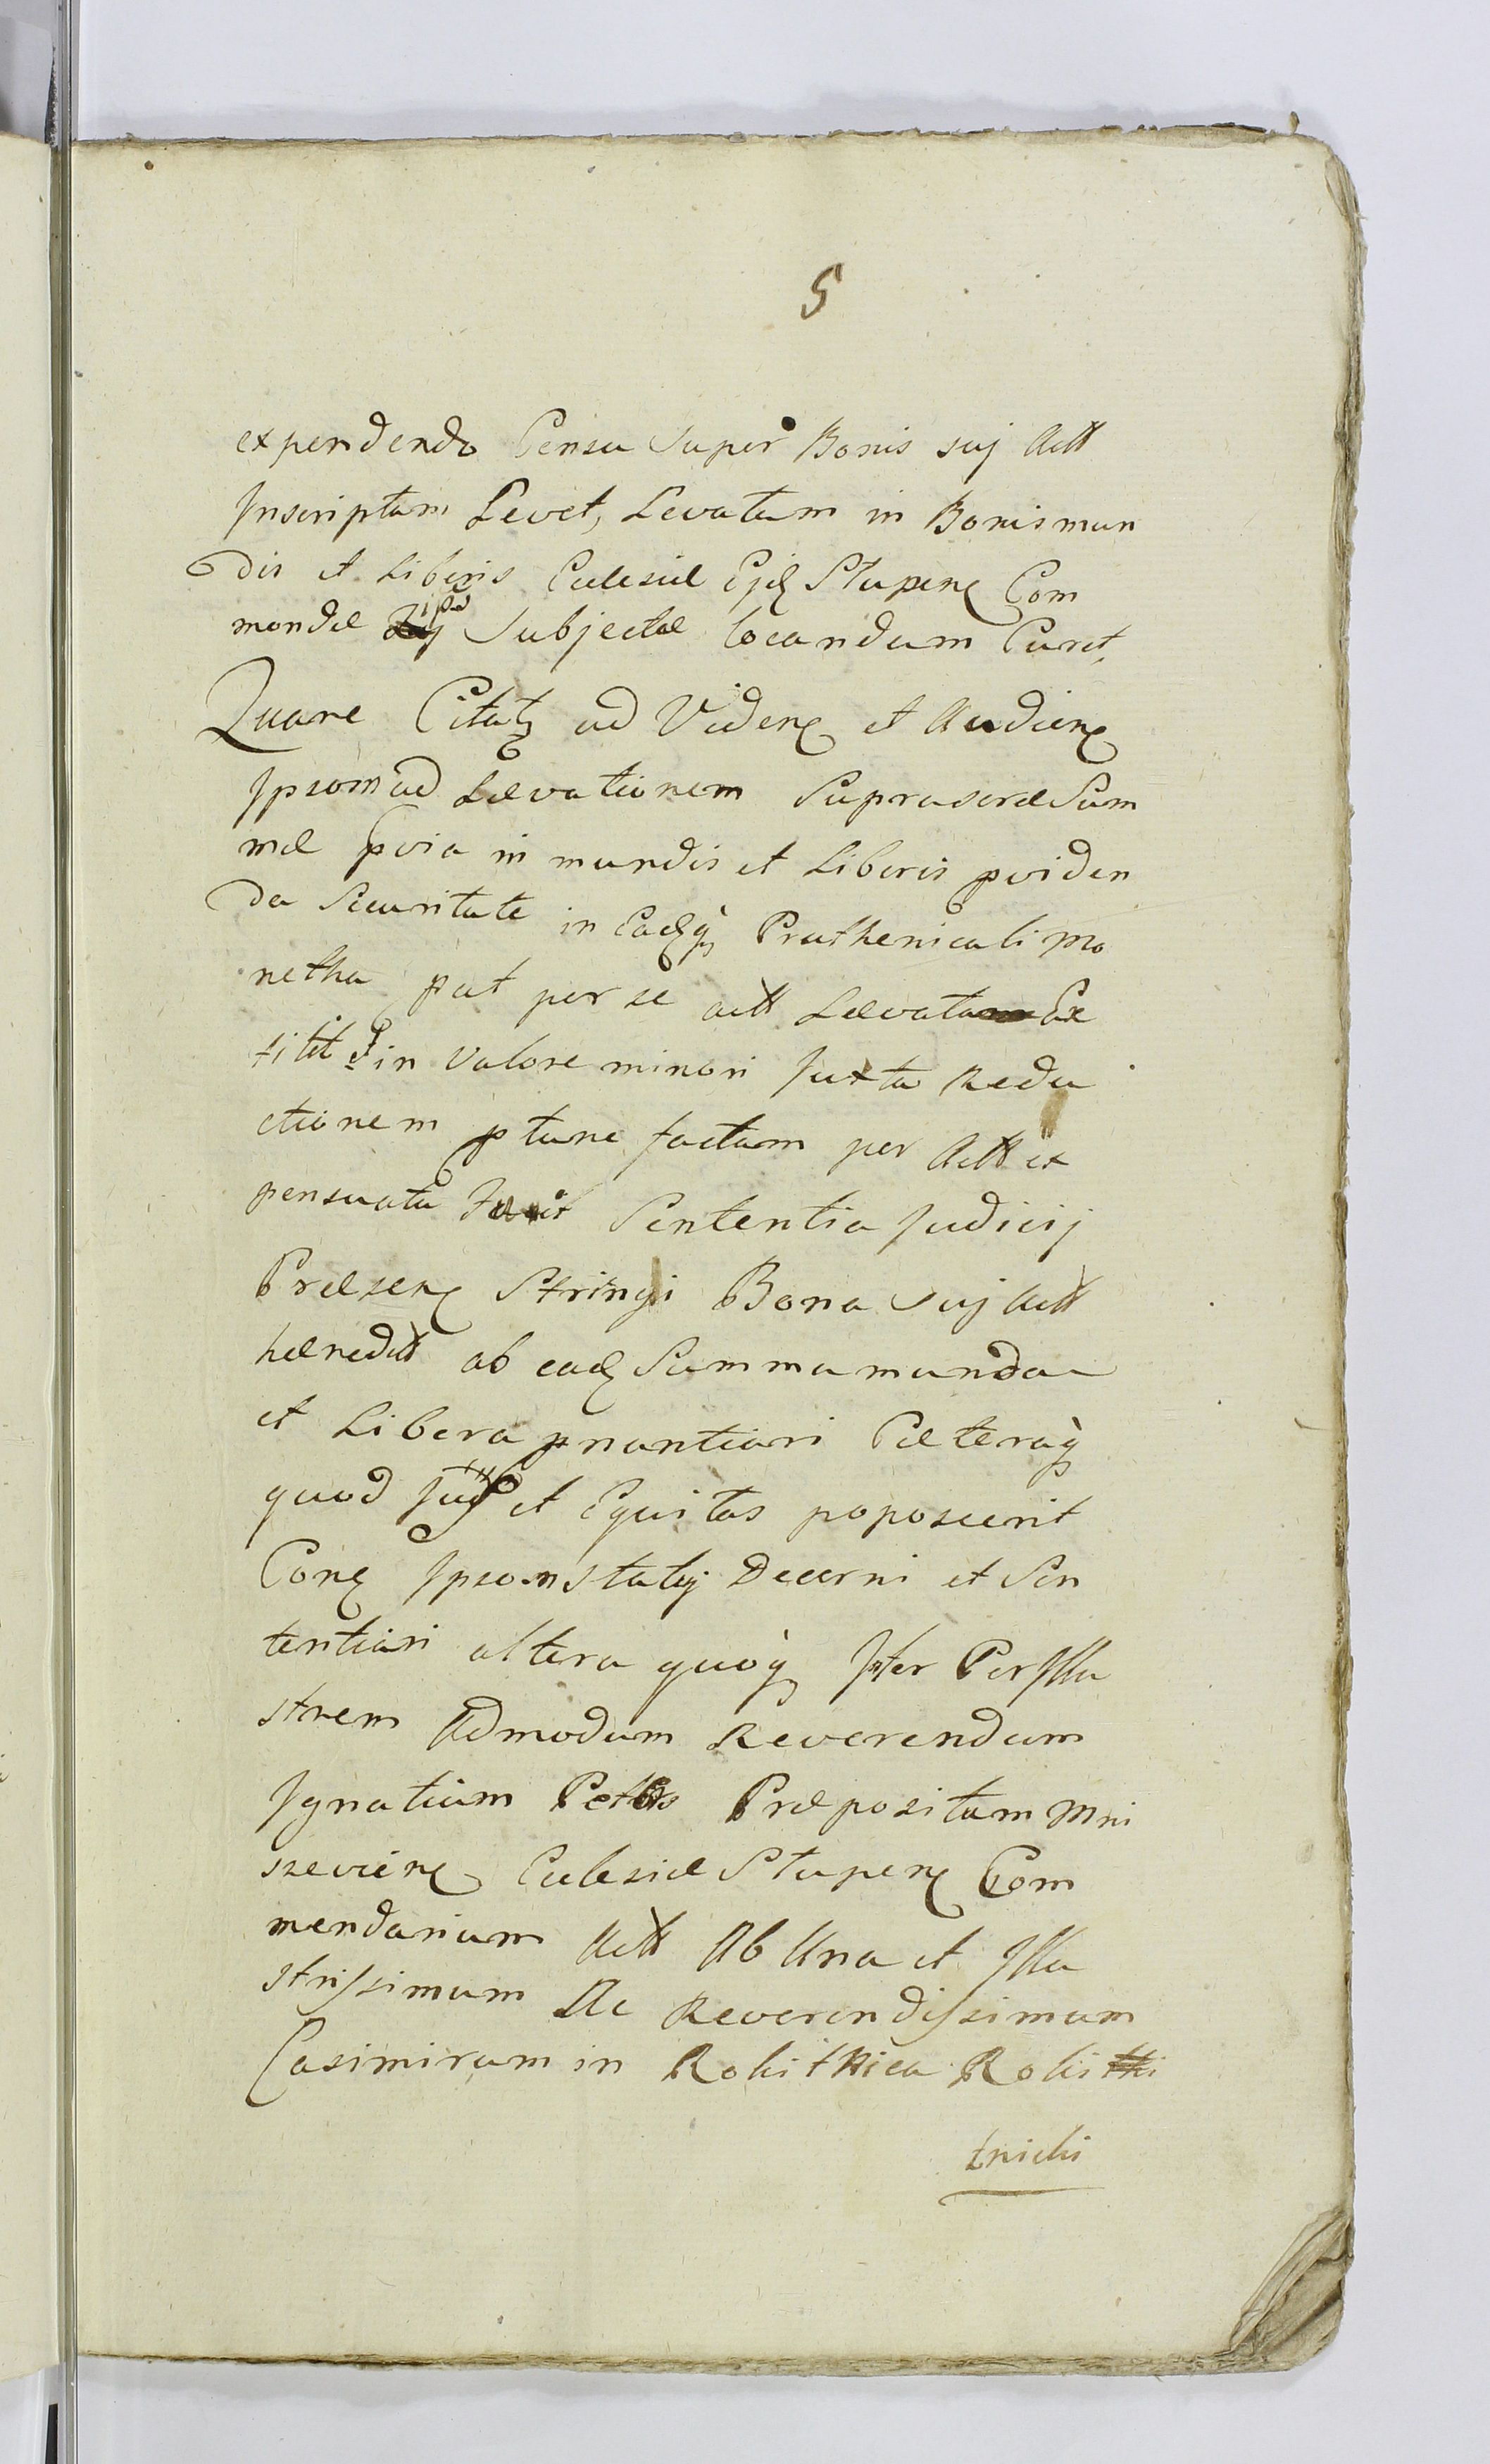 5
expendendo Censu super Bonis suj Actt
Inscriptam Levet, Levatam in Bonis mun
dis et Liberis Ecclesiæ Ejd Stupen Com
mendæ subjectæ locandum Curet,
Quare Citat ad Viden et Audien
Ipsom ad Lævationem Suprascræ Sum
mæ pvia in mundis et Liberis pviden
da Securitate in Eadq Pruthenicali Mo
netha put per se actt Lævata Ex
titit et in Valore minori Juxta Redu
ctionem ptunc factam per Actt ex
pensuata Sententia Judicij
Præsen Stringi Bona suj Actt
hæredit ab ead Summa munda
et Libera pnuntiari Cæteraq
quod Jus et Equitas poposcerit
Con Ipsom Statuj Decerni et Sen
tentiari altera quoq Inter PerIllu
strem Admodum Reverendum
Ignatium Præpositum Mni
szevien Ecclesiæ Stupen Com
mendarium Actt Ab Una et Illu
strissimum Ac Reverendissimum
Casimirum in Rokitnica Rokit
tnicki